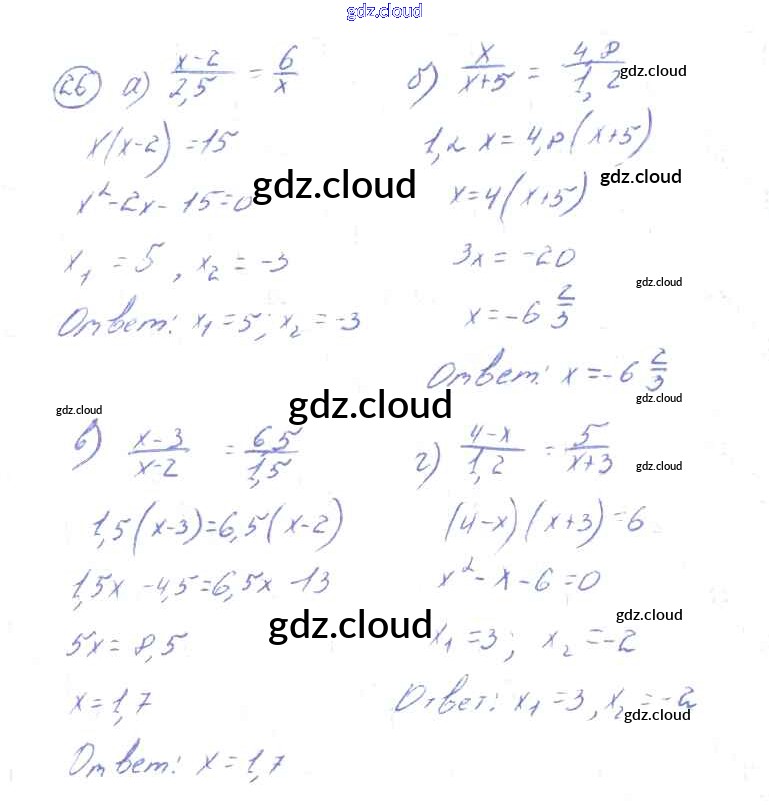 gdz.cloud
26 а) (x-2)/2,5 = 6/x
x(x-2) = 15
x² - 2x - 15 = 0
gdz.cloud
x₁ = 5, x₂ = -3
Ответ: x₁ = 5; x₂ = -3
б) x/(x+5) = 4,8/1,2
gdz.cloud
1,2 x = 4,8 (x+5)
gdz.cloud
x = 4(x+5)
3x = -20
gdz.cloud
x = -6 2/3
Ответ: x = -6 2/3
gdz.cloud
gdz.cloud
gdz.cloud
в) (x-3)/(x-2) = 6,5/1,5
1,5(x-3) = 6,5(x-2)
1,5x - 4,5 = 6,5x - 13
gdz.cloud
5x = 8,5
x = 1,7
Ответ: x = 1,7
г) (4-x)/1,2 = 5/(x+3)
gdz.cloud
(4-x)(x+3) = 6
x² - x - 6 = 0
gdz.cloud
x₁ = 3; x₂ = -2
Ответ: x₁ = 3, x₂ = -2
gdz.cloud